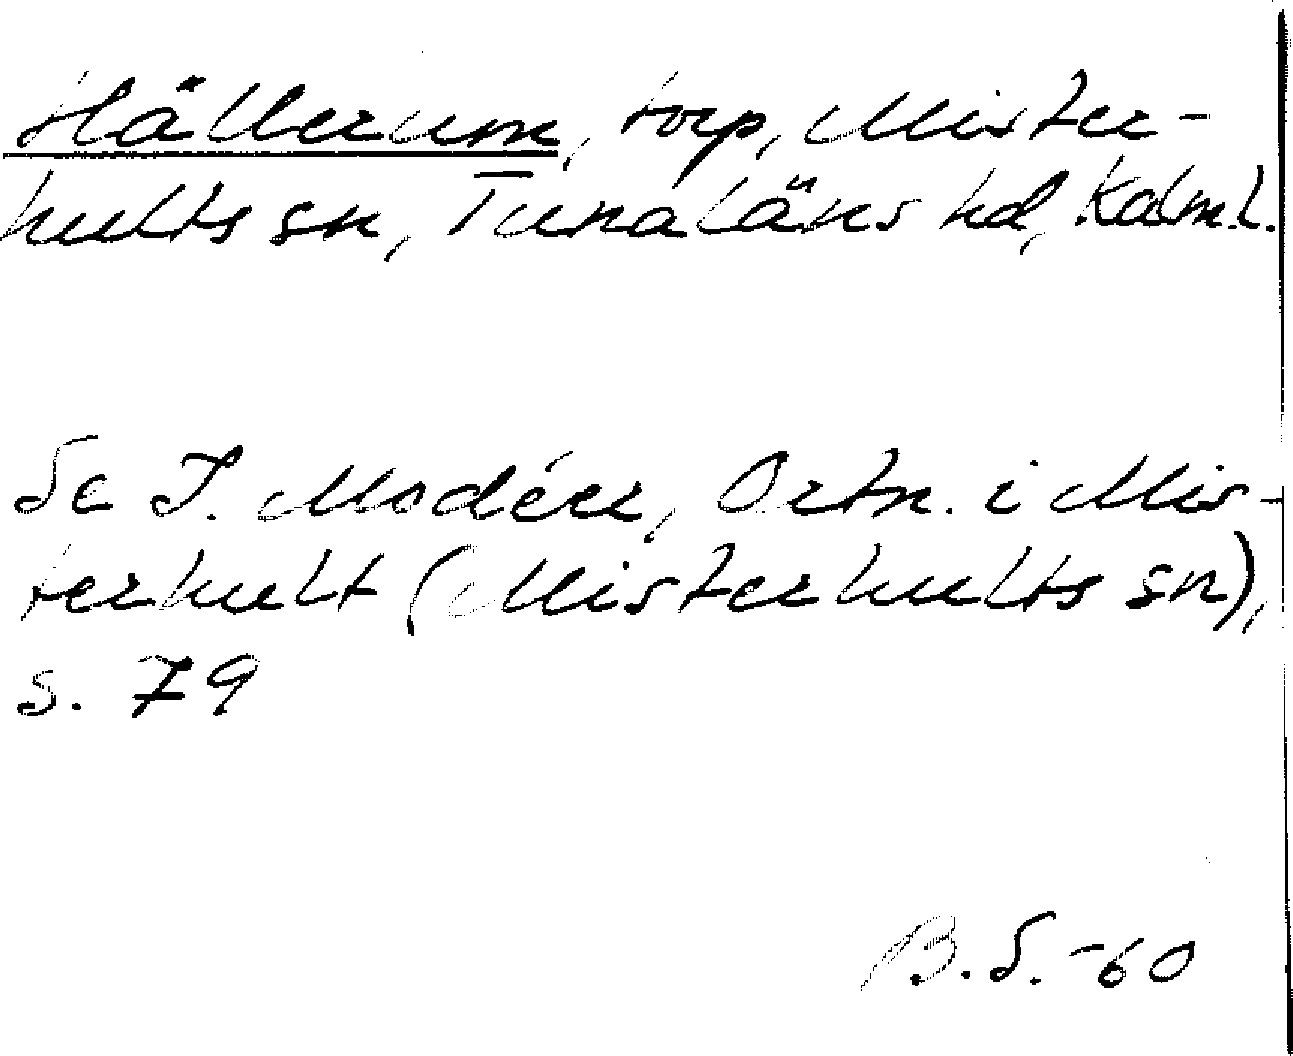 Hällerum, torp, Mister-
hults sn, Tunaläns hd, Kalm.l.
Se I. Modéer, Ortn. i Mis-
terhult (Misterhults sn),
s. 79
B.S. -60